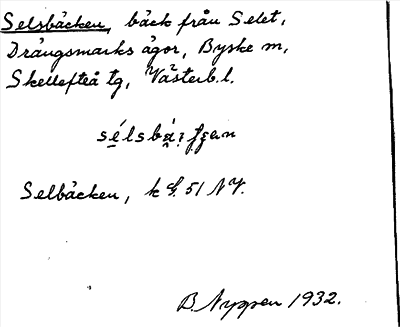 Selsbäcken, bäck från Selet,
Drängsmarks ägor, Byske sn,
Skellefteå tg, Västerb. l.
Selbäcken, k 51 NV.
B. Nygren 1932.